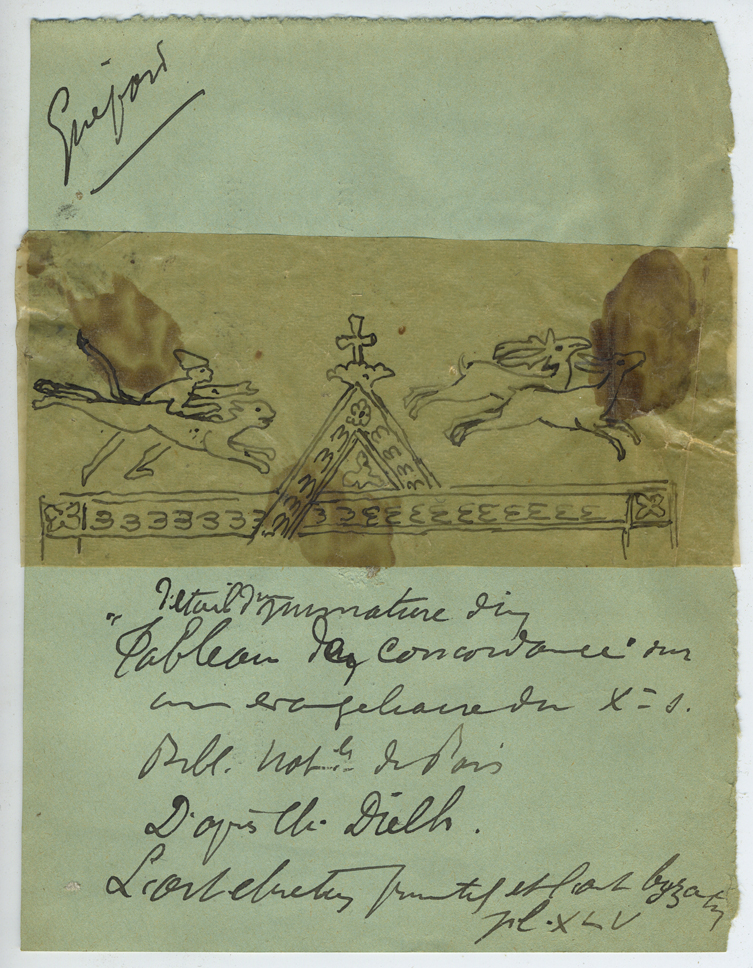 Guépard
Détail d'une miniature d'un
"Tableau de concordance" sur
un évangéliaire du X= s.
Bibl. Natle de Paris
D'après Ch. Diehl.
L'art chrétien primitif et l'art byzantin
pl. XLV